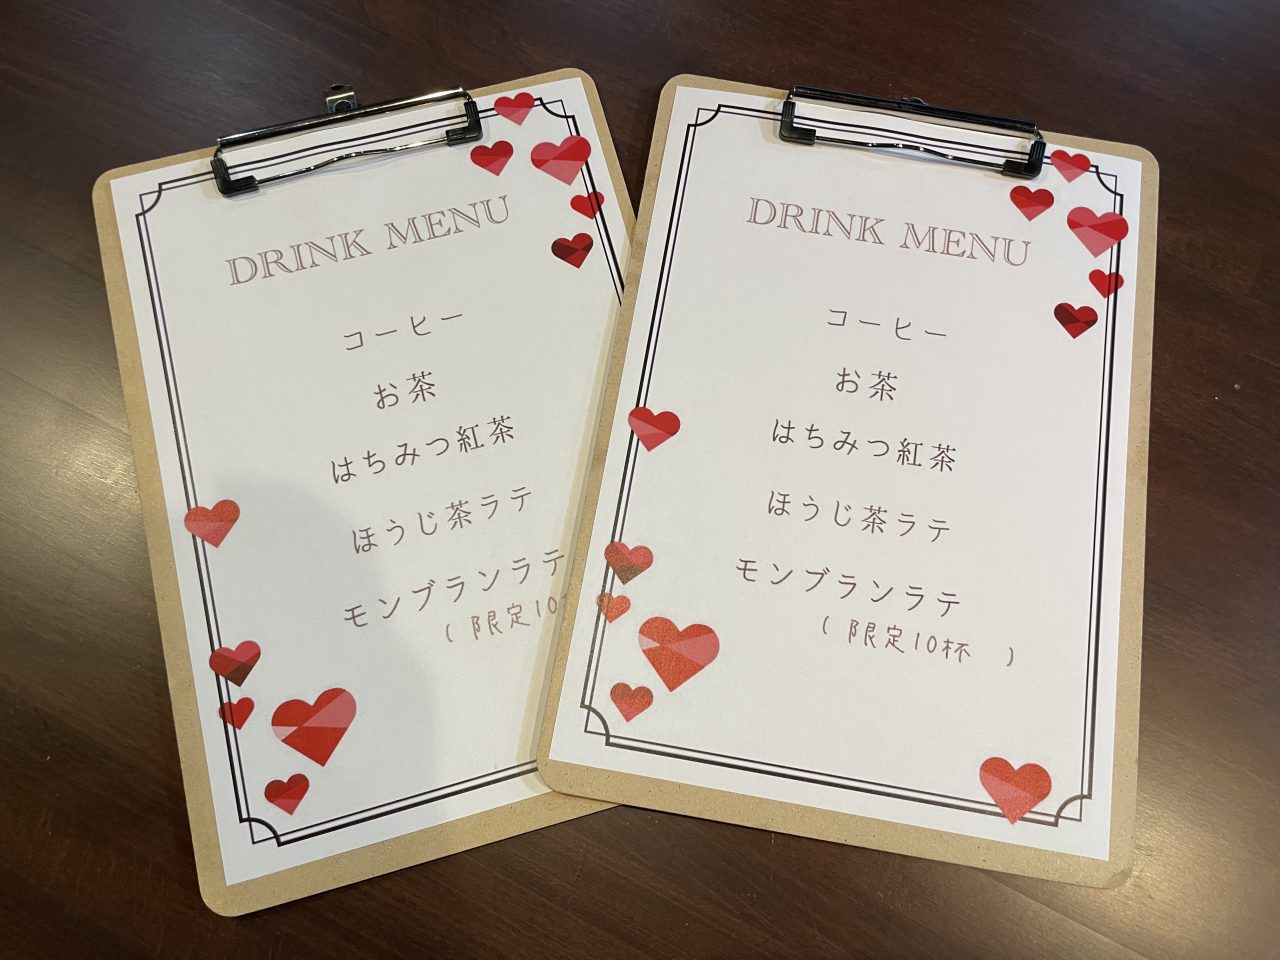 DRINK MENU
コーヒー
お茶
はちみつ紅茶
ほうじ茶ラテ
モンブランラテ
( 限定10
DRINK MENU
コーヒー
お茶
はちみつ紅茶
ほうじ茶ラテ
モンブランラテ
( 限定10杯 )